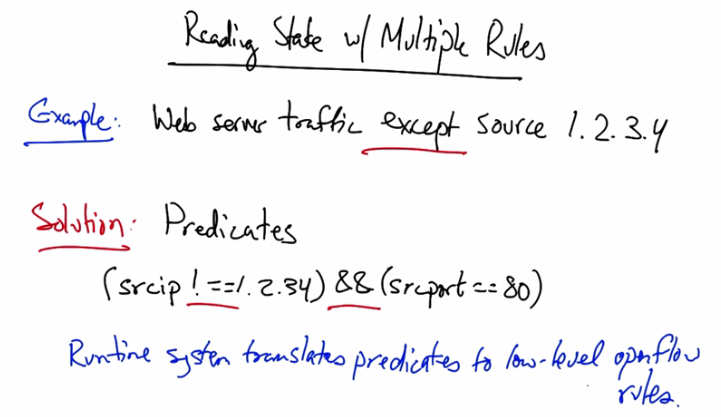 Reading State w/ Multiple Rules
Example: Web server traffic except source 1.2.3.4
Solution: Predicates
(srcip !==1.2.34) && (srcport==80)
Runtime system translates predicates to low-level openflow
rules.